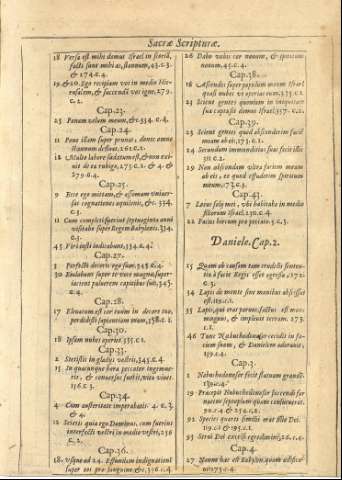 Sacræ Scripturæ.
18 Versa est mihi domus Israel in scoriã,
facti sunt mihi æs, stannum, 43.c.3.
& 274.c.4.
19.& 20. Ego recipiam vos in medio Hierusalem,
& succendã vos igne, 279.
c.1.
Cap.23.
25 Ponam zelum meum, &c. 334. c.4.
Cap.24.
11 Pone illam super prunas, donec omne
stannum defluat, 261.c.1.
12 Multo labore sudatum est, & non exivit
de ea rubigo, 273.c.1. & 4. &
279.c.4.
Cap.25.
9 Ecce ego mittam, & assumam universas
cognationes aquilonis, &c. 334.
c.3.
11 Cum completi fuerint septuaginta anni
visitabo super Regem Babylonis, 334.
c.3.
45 Viri iusti iudicabunt, 334.c.4.
Cap.27.
3 Perfecti decoris ego sum, 345.c.4.
30 Eiulabunt super te voce magna, superiacient
pulverem capitibus suis, 345.
c.4.
Cap.28.
17 Elevatum est cor tuum in decore tuo,
perdidisti sapientiam tuam, 358.c.1.
Cap.30.
18 Ipsam nubes operiet, 335.c.1.
Cap.33.
2 Stetistis in gladijs vestris, 345.c.4.
13 In quacunque hora peccator ingemuerit,
& conversus fuerit, vita vivet,
156.c.3.
Cap.34.
4 Cum austeritate imperabatis. 4. c.3.
& 4.
12 Scietis quia ego Dominus, cum fuerint
interfecti vestri in medio vestri, 256
c.2.
Cap.36.
18 Usque ad 24. Effundam indignationẽ
super eos pro sanguine, &c, 336.c.4.
26 Dabo vobis cor novum, & spiritum
novum, 45.c.4.
Cap.38.
18 Ascendes super populum meum Israel
quasi nubes vt operias eum, 335.c.1.
23 Scient gentes quoniam in iniquitate
sua captasit domus Israel 337.c.1.
Cap.39.
23 Scient gentes quod absconderim faciẽ
meam ab eis, 173.c.1.
24 Secundum immunditias suas fecit illis
311 c.2.
29 Non abscondam vltra faciem meam
ab eis, eo quod effuderim spiritum
meum, 173.c.3.
Cap.43.
7 Locus solij mei, vbi habitabo in medio
filiorum Israel, 130.c.4.
22 Hircum pro peccato, 5.c.3.
Daniele. Cap.2.
15 Quam ob causam tam crudelis sententia
à facie Regis esset egressa, 171.
c.3.
34 Lapis de monte sine manibus abscissus
est, 115.c.1.
35 Lapis, qui erat parvus, factus est mons
magnus, & implevit terram, 173.
c.1.
46 Tunc Nabuchodonosor cecidit in faciem
suam, & Danielem adoravit,
159.c.4.
Cap.3.
1 Nabuchodonosor fecit statuam grandẽ
130.c.4.
19 Præcepit Nabuchodonosor succendi fornacem
septuplum quam consueverat.
92.c.4 & 234.c.2.
92 Species quarti similis erat filio Dei.
119.c.1 & 195.c.1.
93 Servi Dei excelsi egredimini, 26.c.4.
Cap.4.
27 Nonne hæc est Babylon, quam ædificavi
275.c.4.